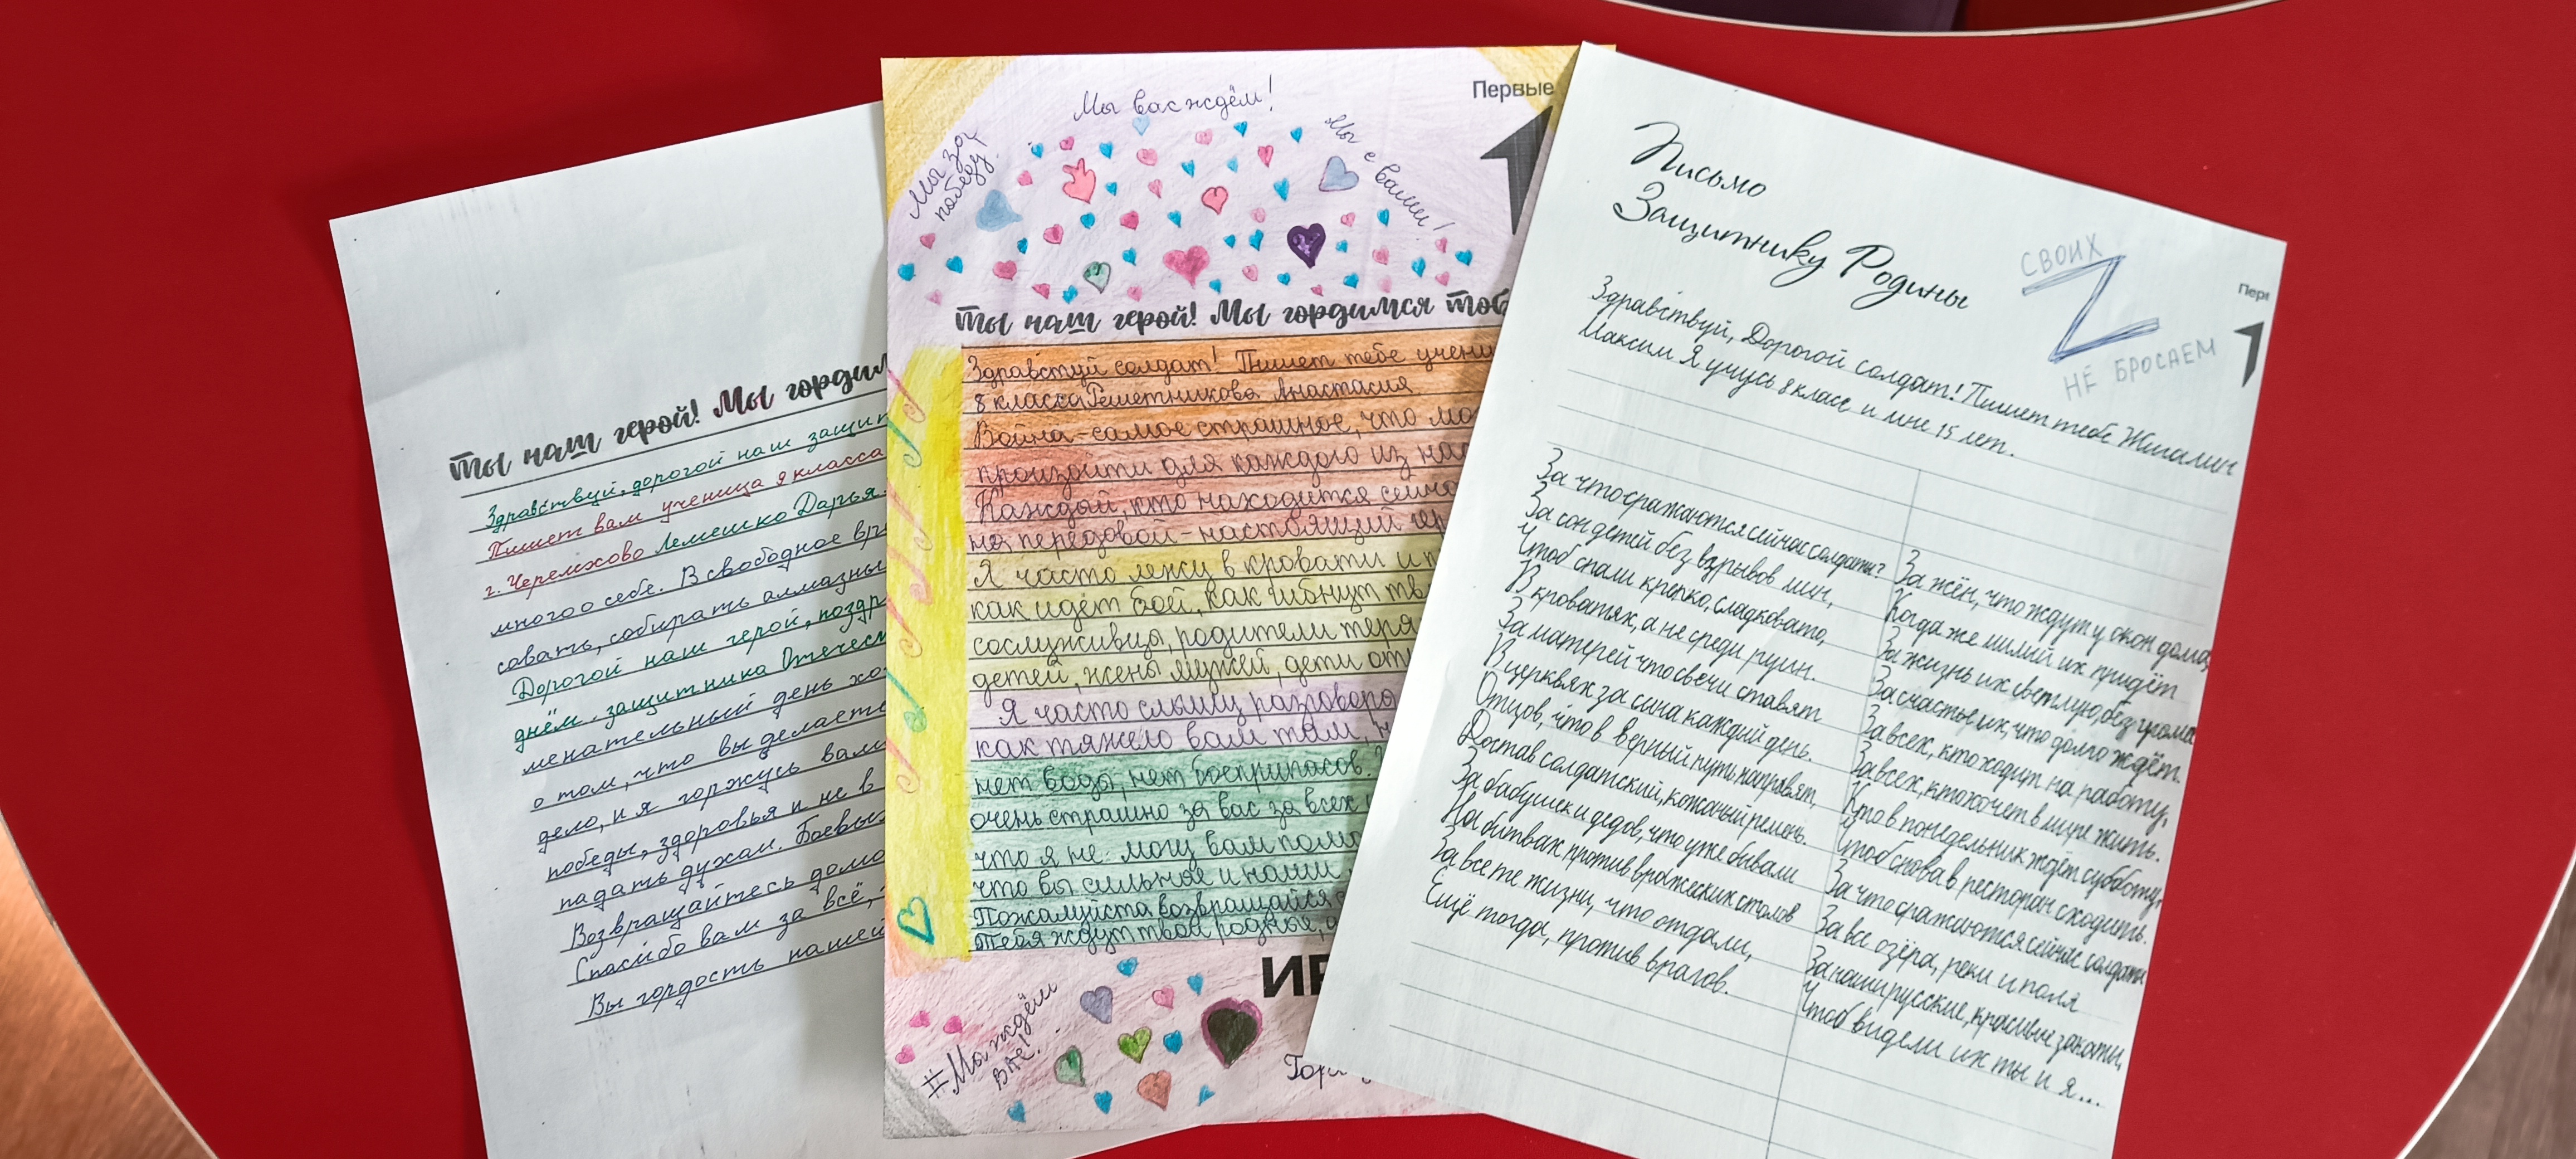 Ты наш герой! Мы гордим
Здравствуй, дорогой наш защит
Пишет вам ученица 9 класса
г. Черемхово Лемешко Дарья.
много о себе. В свободное вр
совать, собирать алмазны
Дорогой наш герой, поздр
днём защитника Отечест
менательный день хо
о том, что вы делаете
дело, и я горжусь вами
победы, здоровья и не в
падать духом. Боевы
Возвращайтесь домо
Спасибо вам за всё,
Вы гордость нашей
Мы за победу!
Мы вас ждём!
Мы с вами!
Первые
Ты наш герой! Мы гордимся тоб
Здравстуй солдат! Пишет тебе учени
8 класса Решетникова Анастасия
Война - самое страшное, что мо
произойти для каждого из нас
Каждой, кто находится сейча
на передовой - настоящий гер
Я часто лежу в кровати и п
как идёт бой, как гибнут тв
сослуживцы, родители теря
детей, жены мужей, дети отц
Я часто слышу разговоры
как тяжело вам там, н
нет воды, нет боеприпасов.
очень страшно за вас за всех
что я не могу вам помо
что вы сильные и наши
Пожалуйста возвращайся
Тебя ждут твои родные,
ИР
#Мы ждём
вас!
Гор
Письмо
Защитнику Родины
СВОИХ
Z
НЕ БРОСАЕМ
Перв
Здравствуй, Дорогой солдат! Пишет тебе Жигалин
Максим Я учусь 8 класс и мне 15 лет.
За что сражаются сейчас солдаты?
За сон детей без взрывов мин,
Чтоб спали крепко, сладковато,
В кроватях, а не среди руин.
За матерей что свечи ставят
В церквях за сына каждый день.
Отцов, что в верный путь направят,
Достав солдатский, кожаный ремень.
За бабушек и дедов, что уже бывали
На битвах против вражеских столов
За все те жизни, что отдали,
Ещё тогда, против врагов.
За жён, что ждут у окон дома,
Когда же милый их придёт
За жизнь их светлую, без грома
За счастье их, что долго ждёт.
За всех, кто ходит на работу,
За всех, кто хочет в мире жить.
Кто в понедельник ждёт субботу,
Чтоб снова в ресторан сходить.
За что сражаются сейчас солдаты
За все озёра, реки и поля
За наши русские, красивые закаты,
Чтоб видели их ты и я...